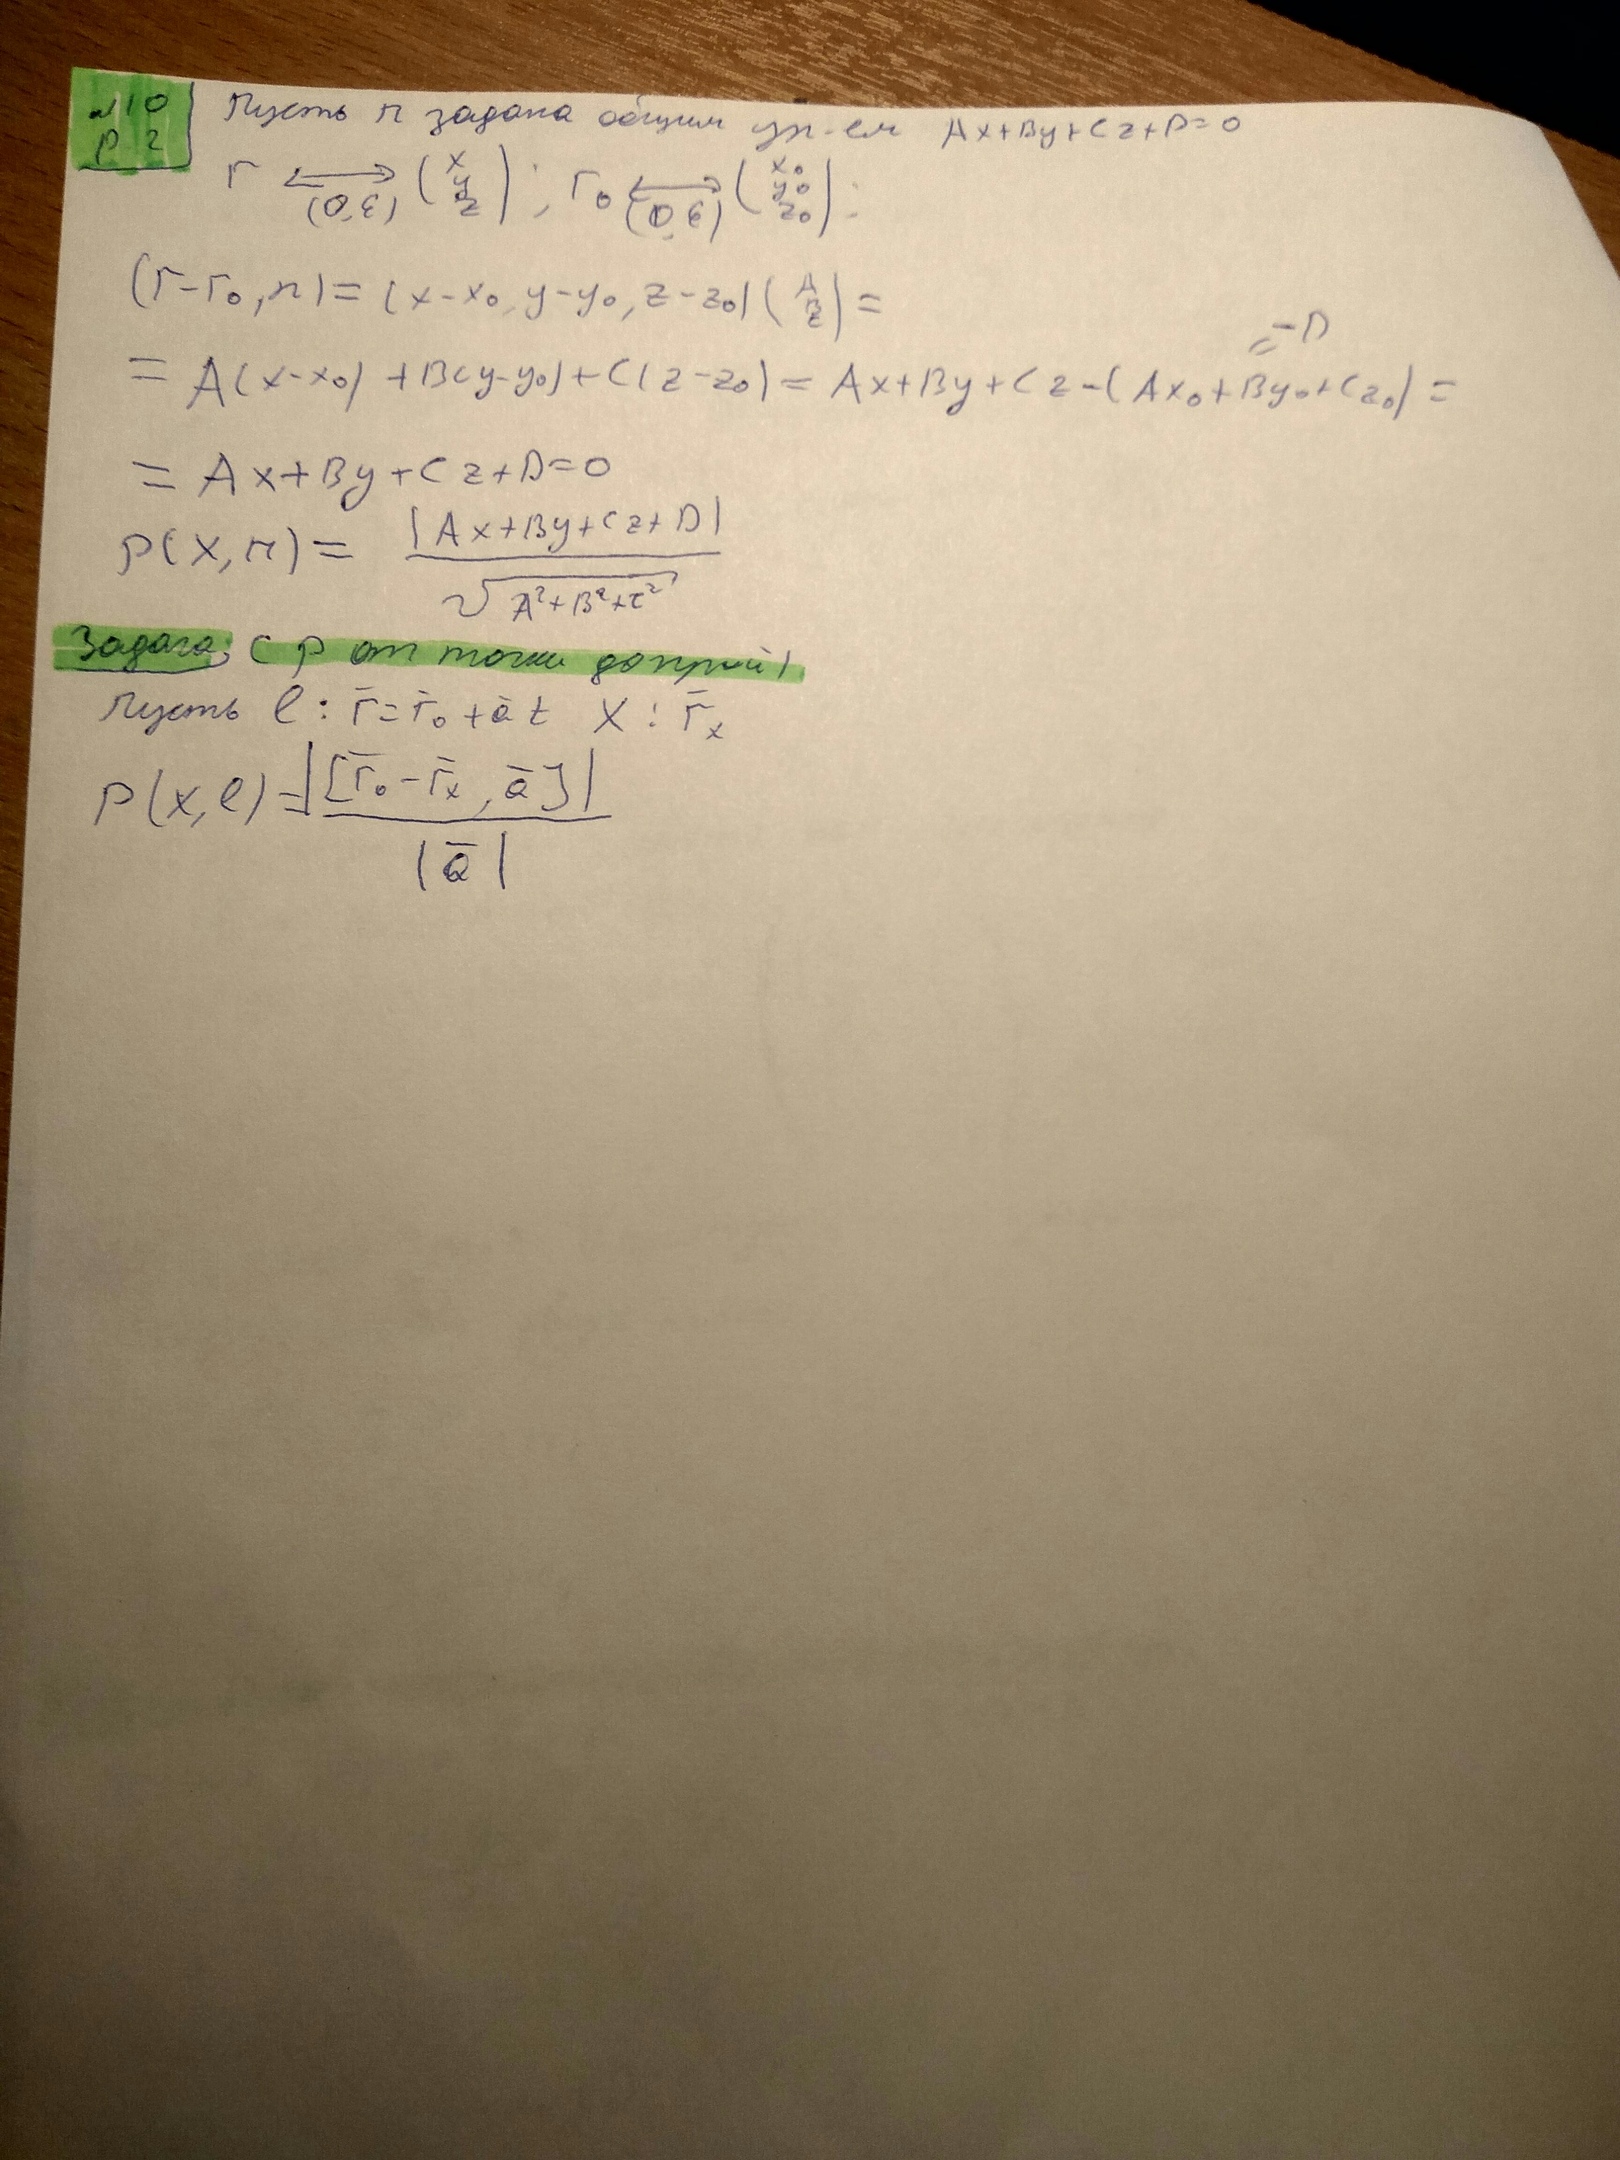 №10 Пусть π задана общим ур-ем Ax+By+Cz+D=0
p 2
r ⟷ (O,ε) (x y z); r₀ ⟷ (O,ε) (x₀ y₀ z₀):
(r-r₀,n)=(x-x₀, y-y₀, z-z₀)(A B z)=
=A(x-x₀)+B(y-y₀)+C(z-z₀)=Ax+By+Cz-(Ax₀+By₀+Cz₀)= =-D
=Ax+By+Cz+D=0
ρ(X,π)= |Ax+By+Cz+D| / √(A²+B²+C²)
Задача: ( ρ от точки до прмой)
Пусть l: r̄=r̄₀+āt X: r̄ₓ
ρ(x,l)=|[r̄₀-r̄ₓ, ā]| / |ā|